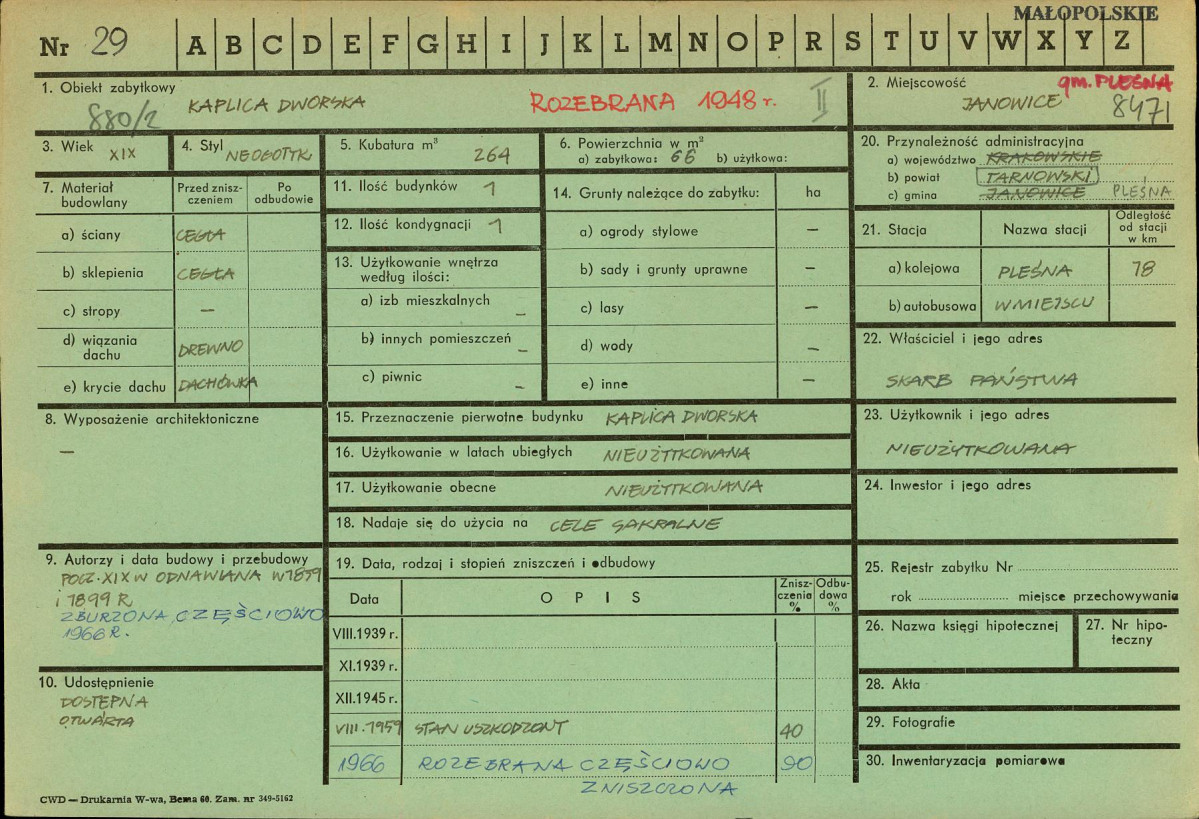 MAŁOPOLSKIE
Nr 29 A B C D E F G H I J K L M N O P R S T U V W X Y Z
1. Obiekt zabytkowy
880/2 KAPLICA DWORSKA ROZEBRANA 1948 r. II
2. Miejscowość gm. PLEŚNA
JANOWICE 8471
3. Wiek XIX
4. Styl NEOGOTYK
5. Kubatura m³ 264
6. Powierzchnia w m²
a) zabytkowa: 66 b) użytkowa:
20. Przynależność administracyjna
a) województwo KRAKOWSKIE
b) powiat TARNOWSKI
c) gmina JANOWICE PLEŚNA
7. Materiał budowlany
Przed zniszczeniem
Po odbudowie
a) ściany CEGŁA
b) sklepienia CEGŁA
c) stropy —
d) wiązania dachu DREWNO
e) krycie dachu DACHÓWKA
11. Ilość budynków 1
12. Ilość kondygnacji 1
13. Użytkowanie wnętrza
według ilości:
a) izb mieszkalnych —
b) innych pomieszczeń —
c) piwnic —
14. Grunty należące do zabytku: ha
a) ogrody stylowe —
b) sady i grunty uprawne —
c) lasy —
d) wody —
e) inne —
21. Stacja Nazwa stacji Odległość od stacji w km
a) kolejowa PLEŚNA 18
b) autobusowa W MIEJSCU
22. Właściciel i jego adres
SKARB PAŃSTWA
8. Wyposażenie architektoniczne
—
15. Przeznaczenie pierwotne budynku KAPLICA DWORSKA
16. Użytkowanie w latach ubiegłych NIEUŻYTKOWANA
17. Użytkowanie obecne NIEUŻYTKOWANA
18. Nadaje się do użycia na CELE SAKRALNE
23. Użytkownik i jego adres
NIEUŻYTKOWANA
24. Inwestor i jego adres
9. Autorzy i data budowy i przebudowy
POCZ. XIX W ODNAWIANA W 1859
i 1899 R.
ZBURZONA CZĘŚCIOWO
1966 R.
10. Udostępnienie
DOSTĘPNA
OTWARTA
19. Data, rodzaj i stopień zniszczeń i odbudowy
Data OPIS Zniszczenia % Odbudowa %
VIII.1939 r.
XI.1939 r.
XII.1945 r.
VIII.1959 STAN USZKODZONY 40
1966 ROZEBRANA CZĘŚCIOWO 90
ZNISZCZONA
25. Rejestr zabytku Nr
rok miejsce przechowywania
26. Nazwa księgi hipotecznej
27. Nr hipoteczny
28. Akta
29. Fotografie
30. Inwentaryzacja pomiarowa
CWD — Drukarnia W-wa, Bema 60. Zam. nr 349-5162